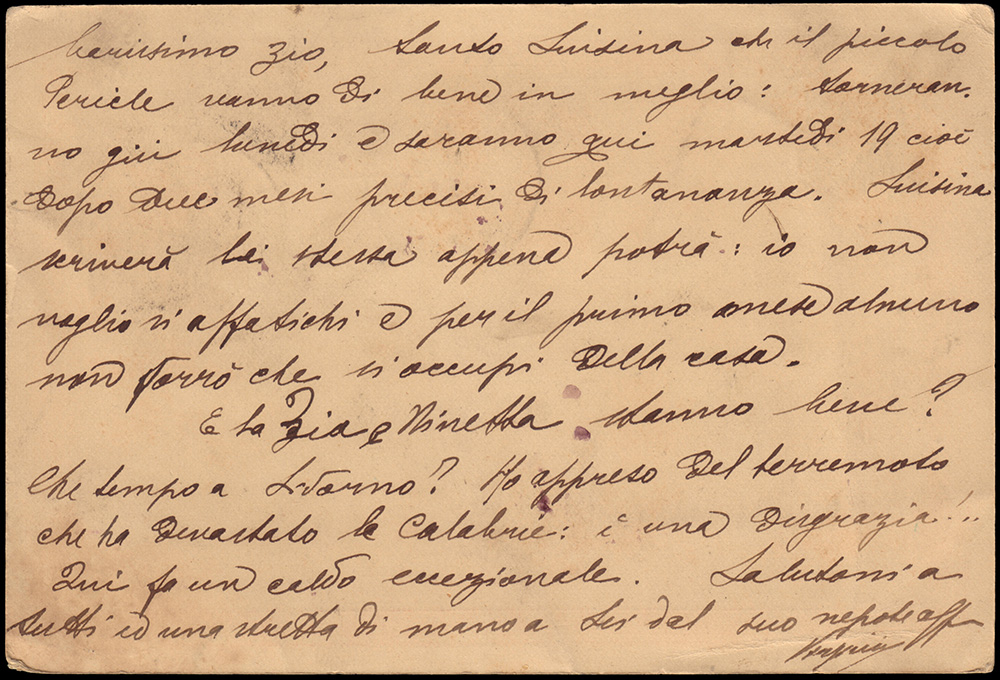 Carissimo Zio, tanto Luisina che il piccolo
Pericle vanno di bene in meglio: torneran-
no giù lunedì e saranno qui martedì 19 cioè
dopo due mesi precisi di lontananza. Luisina
scriverà lei stessa appena potrà: io non
voglio si affatichi e per il primo mese almeno
non vorrò che si occupi della casa.
E la Zia e Ninetta stanno bene?
Che tempo a Livorno? Ho appreso del terremoto
che ha devastato le Calabrie: è una disgrazia!..
Qui fa un caldo eccezionale. Saluti a
tutti ed una stretta di mano a Lei dal suo nepote aff